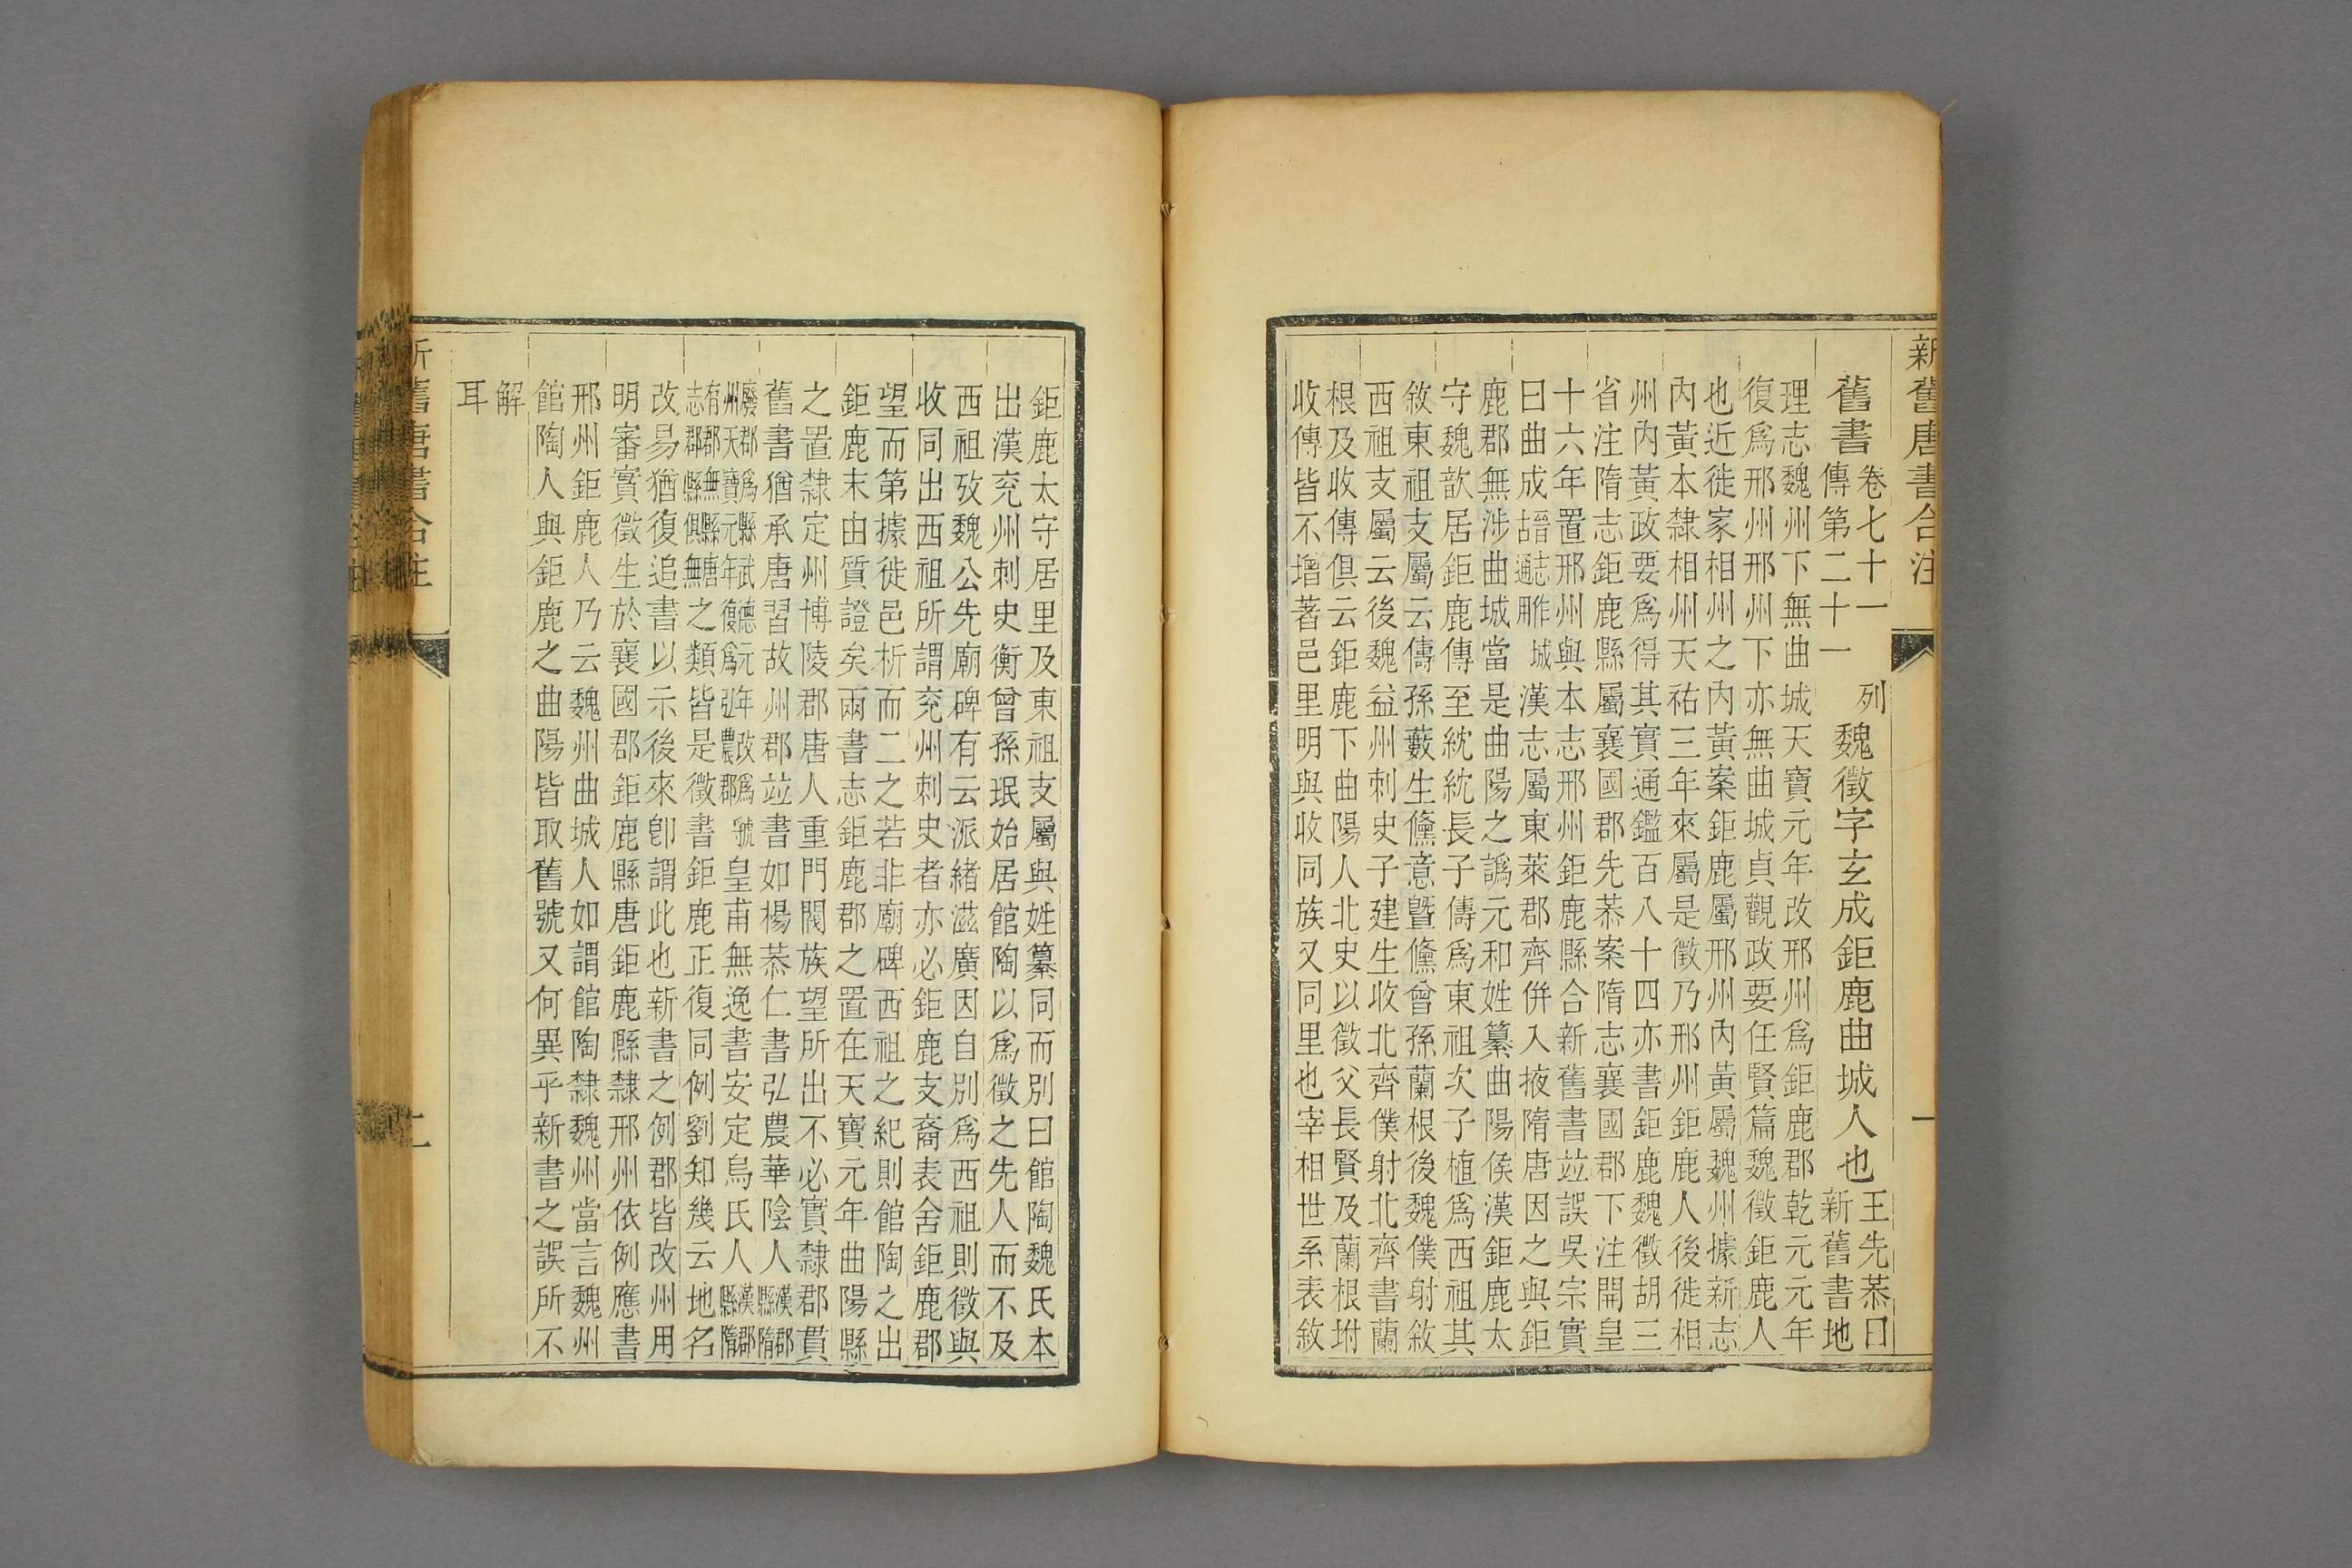 新舊唐書合注
一
舊書
卷七十一 列
傳第二十一
魏徵字玄成鉅鹿曲城人也
王先恭曰
新舊書地
理志魏州下無曲城天寶元年改邢州爲鉅鹿郡乾元元年
復爲邢州邢州下亦無曲城貞觀政要任賢篇魏徵鉅鹿人
也近徙家相州之內黃案鉅鹿屬邢州內黃屬魏州據新志
內黃本隸相州天祐三年來屬是徵乃邢州鉅鹿人後徙相
州內黃政要爲得其實通鑑百八十四亦書鉅鹿魏徵胡三
省注隋志鉅鹿縣屬襄國郡先恭案隋志襄國郡下注開皇
十六年置邢州與本志邢州鉅鹿縣合新舊書竝誤吳宗實
曰曲成
城
漢志屬東萊郡齊併入掖隋唐因之與鉅
鹿郡無涉曲城當是曲陽之譌元和姓纂曲陽侯漢鉅鹿太
守魏歆居鉅鹿傳至紞紞長子儔爲東祖次子植爲西祖其
敘東祖支屬云儔孫藪生儻意曁儻曾孫蘭根後魏僕射敘
西祖支屬云後魏益州刺史子建生收北齊僕射北齊書蘭
根及收傳俱云鉅鹿下曲陽人北史以徵父長賢及蘭根坿
收傳皆不增著邑里明與收同族又同里也宰相世系表敘
鉅鹿太守居里及東祖支屬與姓纂同而別曰館陶魏氏本
出漢兗州刺史衡曾孫珉始居館陶以爲徵之先人而不及
西祖攷魏公先廟碑有云派緒滋廣因自別爲西祖則徵與
收同出西祖所謂兗州刺史者亦必鉅鹿支裔表舍鉅鹿郡
望而第據徙邑析而二之若非廟碑西祖之紀則館陶之出
鉅鹿末由質證矣兩書志鉅鹿郡之置在天寶元年曲陽縣
之置隸定州博陵郡唐人重門閥族望所出不必實隸郡貫
舊書猶承唐習故州郡竝書如楊恭仁書弘農華陰人
漢郡
縣隋
廢郡爲縣武德元年改爲虢
州天寶元年復爲弘農郡
皇甫無逸書安定烏氏人
漢郡
縣隋
有郡無縣唐
志郡縣俱無
之類皆是徵書鉅鹿正復同例劉知幾云地名
改易猶復追書以示後來卽謂此也新書之例郡皆改州用
明審實徵生於襄國郡鉅鹿縣唐鉅鹿縣隸邢州依例應書
邢州鉅鹿人乃云魏州曲城人如謂館陶隸魏州當言魏州
館陶人與鉅鹿之曲陽皆取舊號又何異乎新書之誤所不
解
耳
新舊唐書合注
二